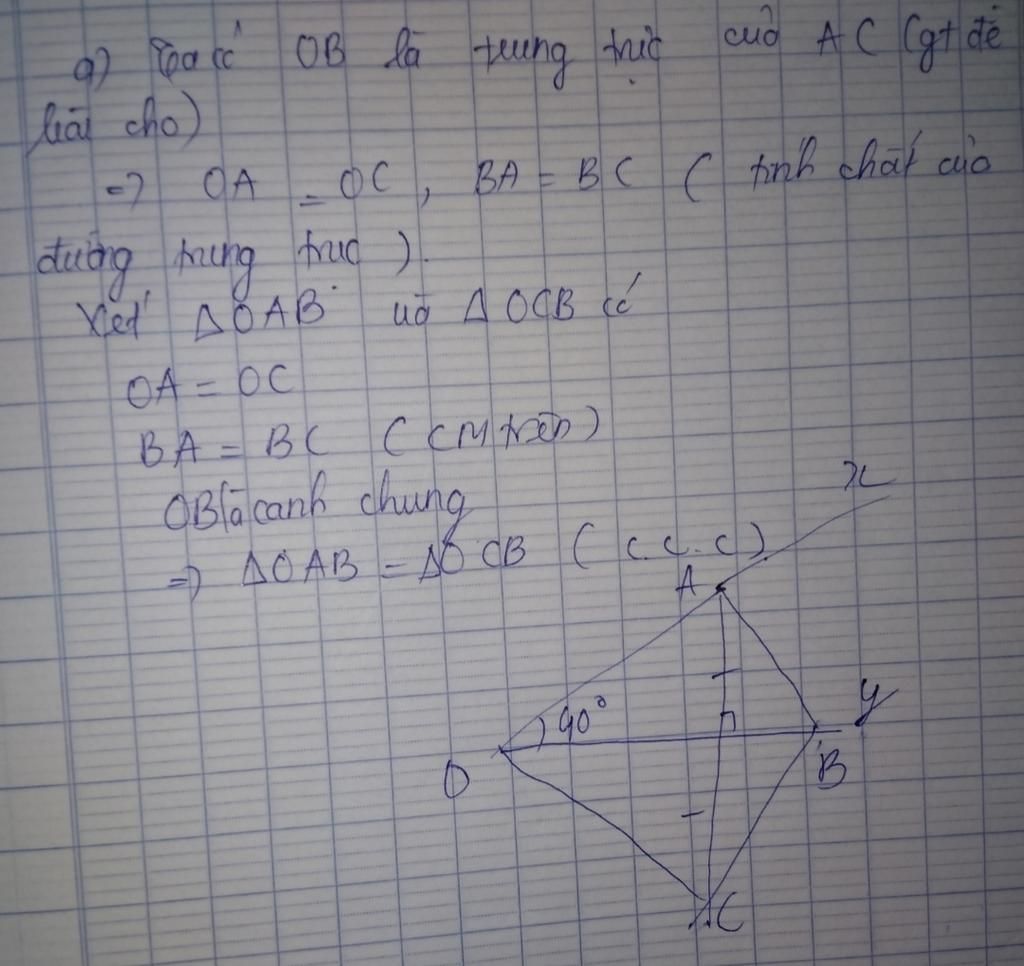 a) Ta có OB là trung trực của AC (gt đề
bài cho)
=> OA = OC, BA = BC ( tính chất của
đường trung trực ).
Xét ΔOAB và ΔOCB có
OA = OC
BA = BC ( CM trên)
OB là cạnh chung
=> ΔOAB = ΔOCB ( c.c.c)
x
A
90°
y
O
B
C